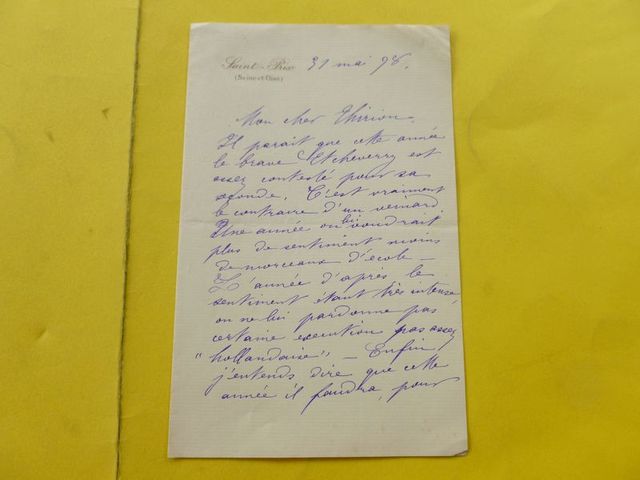 Saint-Prix 31 mai 98.
(Seine et Oise)
Mon cher Thirion.
Il parait que cette année
le brave Etcheverry est
assez contesté pour sa
seconde. C'est vraiment
le contraire d'un veinard
Une année on lui voudrait
plus de sentiment moins
de morceaux d'école -
L'année d'après le
sentiment étant très intense,
on ne lui pardonne pas
certaine execution pas assez
"hollandaise" - Enfin
j'entends dire que cette
année il faudra, pour